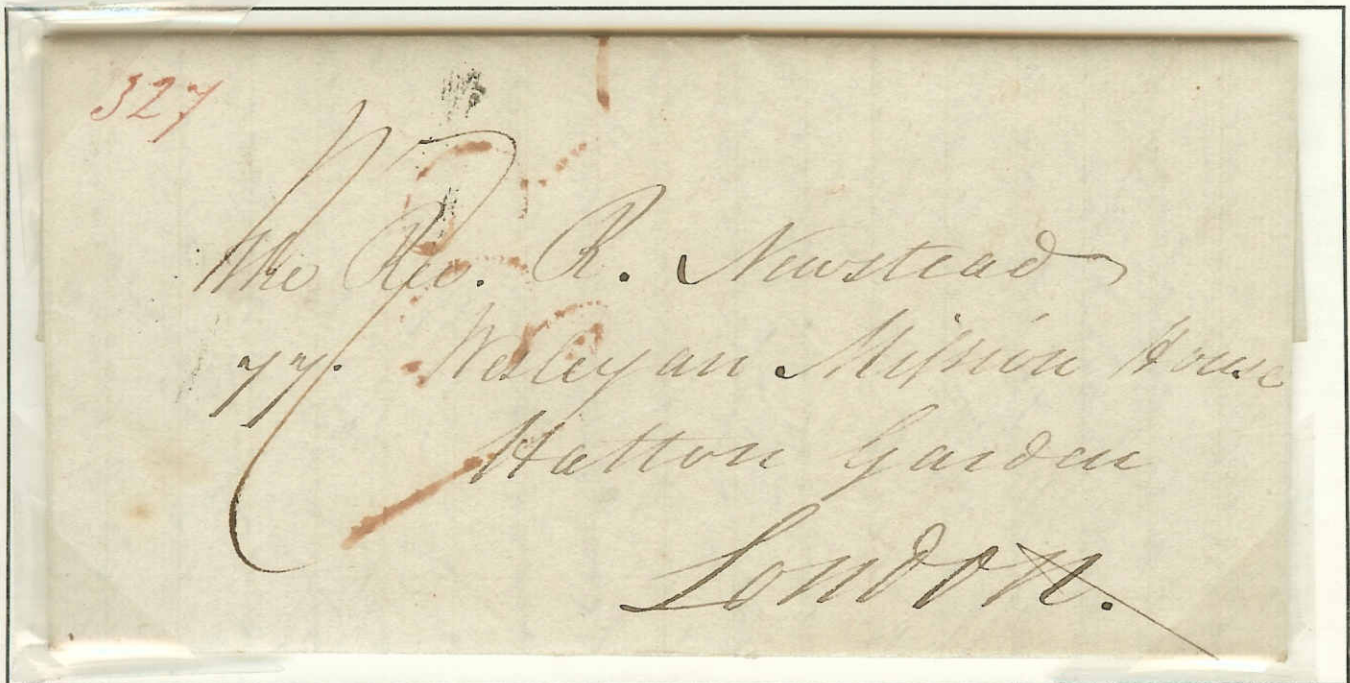 327
The Rev. R. Newstead
77. Wesleyan Mission House
Hatton Garden
London.